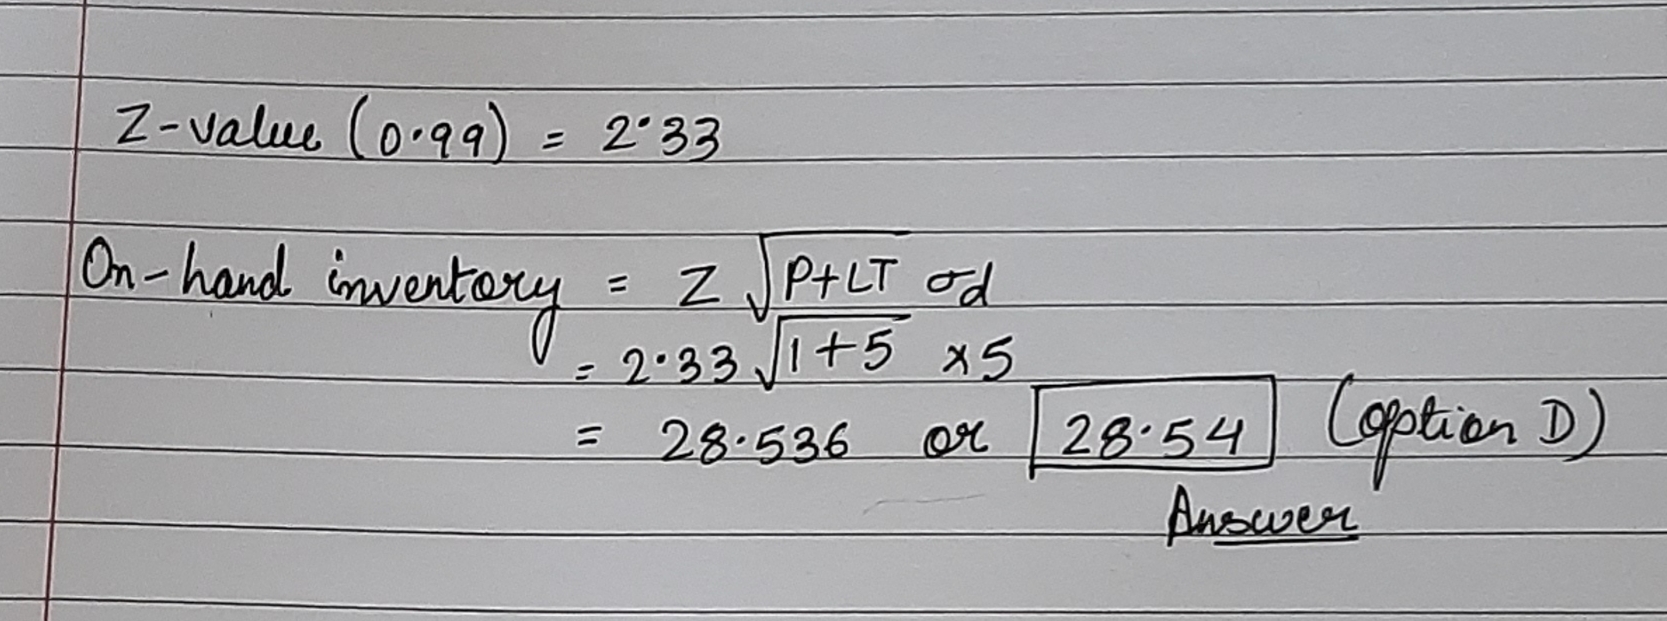 Z-value (0.99) = 2.33
On-hand inventory = Z √P+LT σd
= 2.33 √1+5 x5
= 28.536 or 28.54 (option D)
Answer